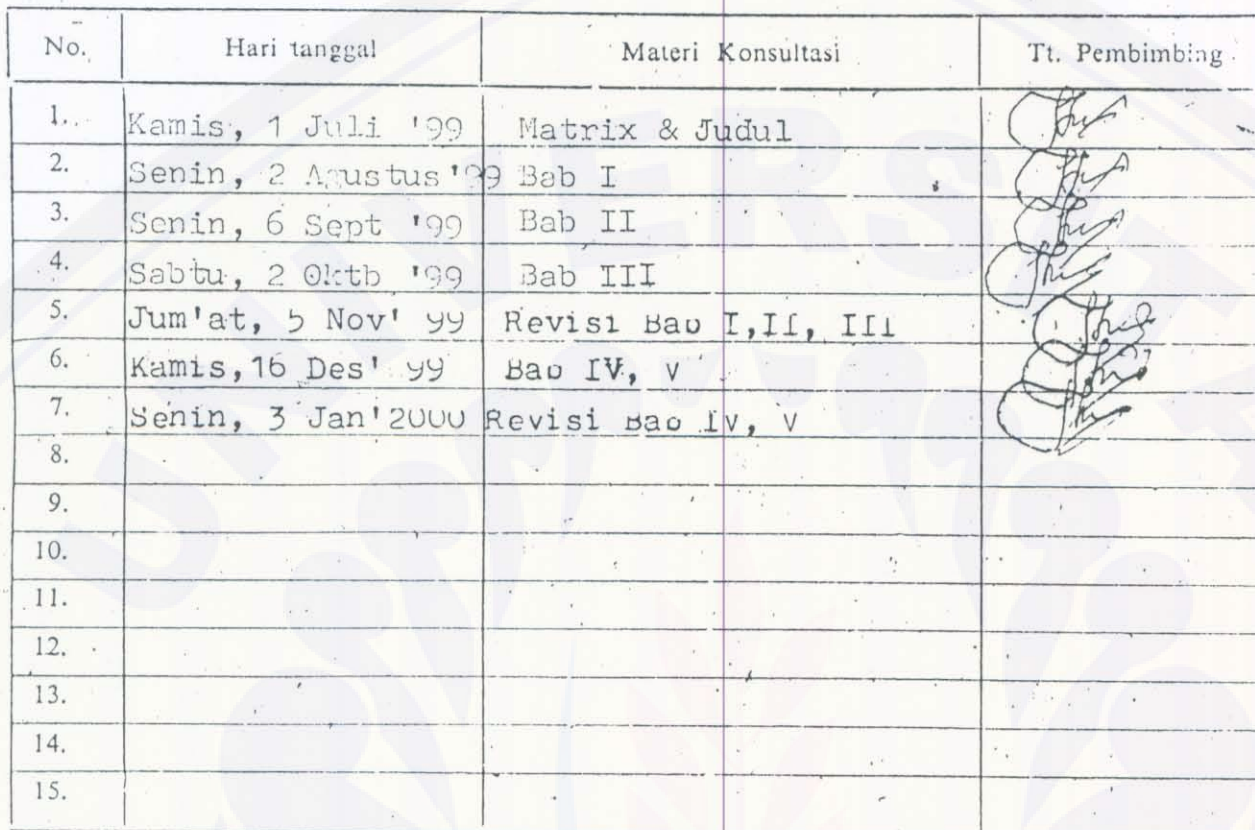 No. Hari tanggal Materi Konsultasi Tt. Pembimbing
1. Kamis, 1 Juli '99 Matrix & Judul
2. Senin, 2 Agustus '99 Bab I
3. Senin, 6 Sept '99 Bab II
4. Sabtu, 2 Oktb '99 Bab III
5. Jum'at, 5 Nov' 99 Revisi Bab I,II, III
6. Kamis, 16 Des' 99 Bab IV, V
7. Senin, 3 Jan'2000 Revisi Bab IV, V
8.
9.
10.
11.
12.
13.
14.
15.
UNIVERSITA